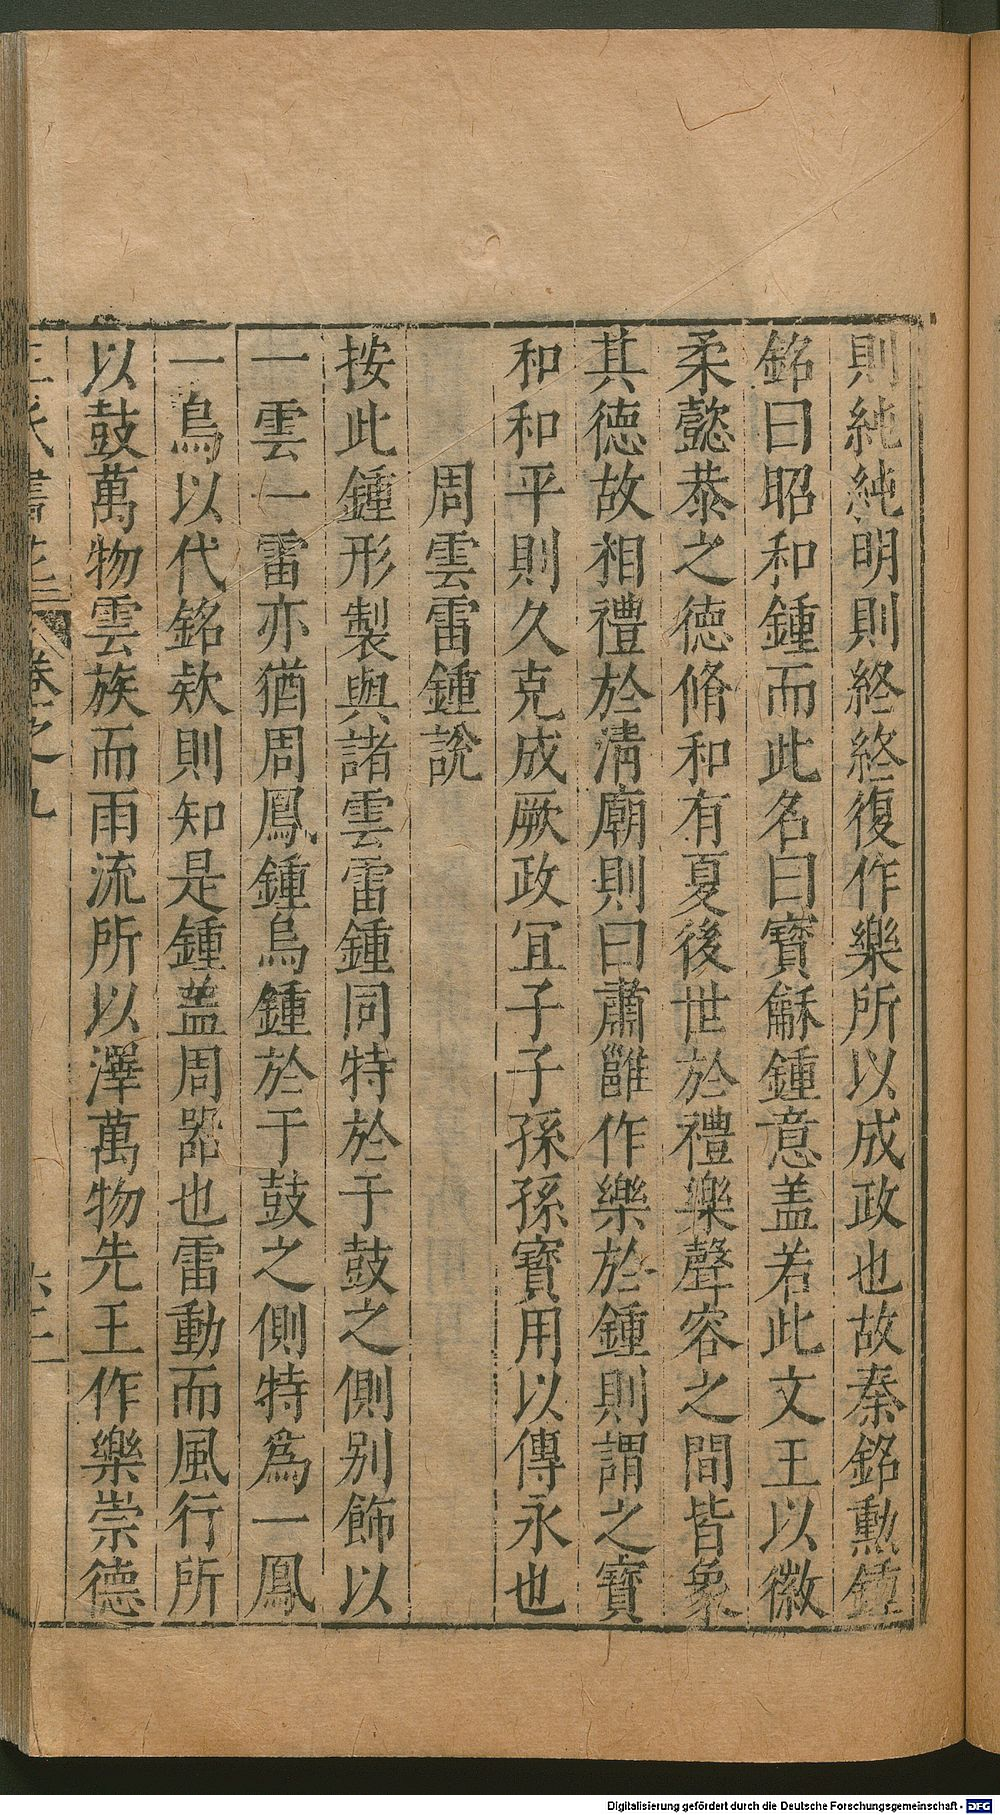 則純純明則終終復作樂所以成政也故秦銘勲鍾
銘曰昭和鍾而此名曰寶龢鍾意盖若此文王以徽
柔懿恭之德脩和有夏後世於禮樂聲容之間皆象
其德故相禮於清廟則曰肅雝作樂於鍾則謂之寶
和和平則久克成厥政宜子子孫孫寶用以傳永也
周雲雷鍾說
按此鍾形製與諸雲雷鍾同特於于鼓之側别飾以
一雲一雷亦猶周鳳鍾烏鍾於于鼓之側特爲一鳳
一烏以代銘欵則知是鍾蓋周器也雷動而風行所
以鼓萬物雲族而雨流所以澤萬物先王作樂崇德
卷之九
Digitalisierung gefördert durch die Deutsche Forschungsgemeinschaft - DFG